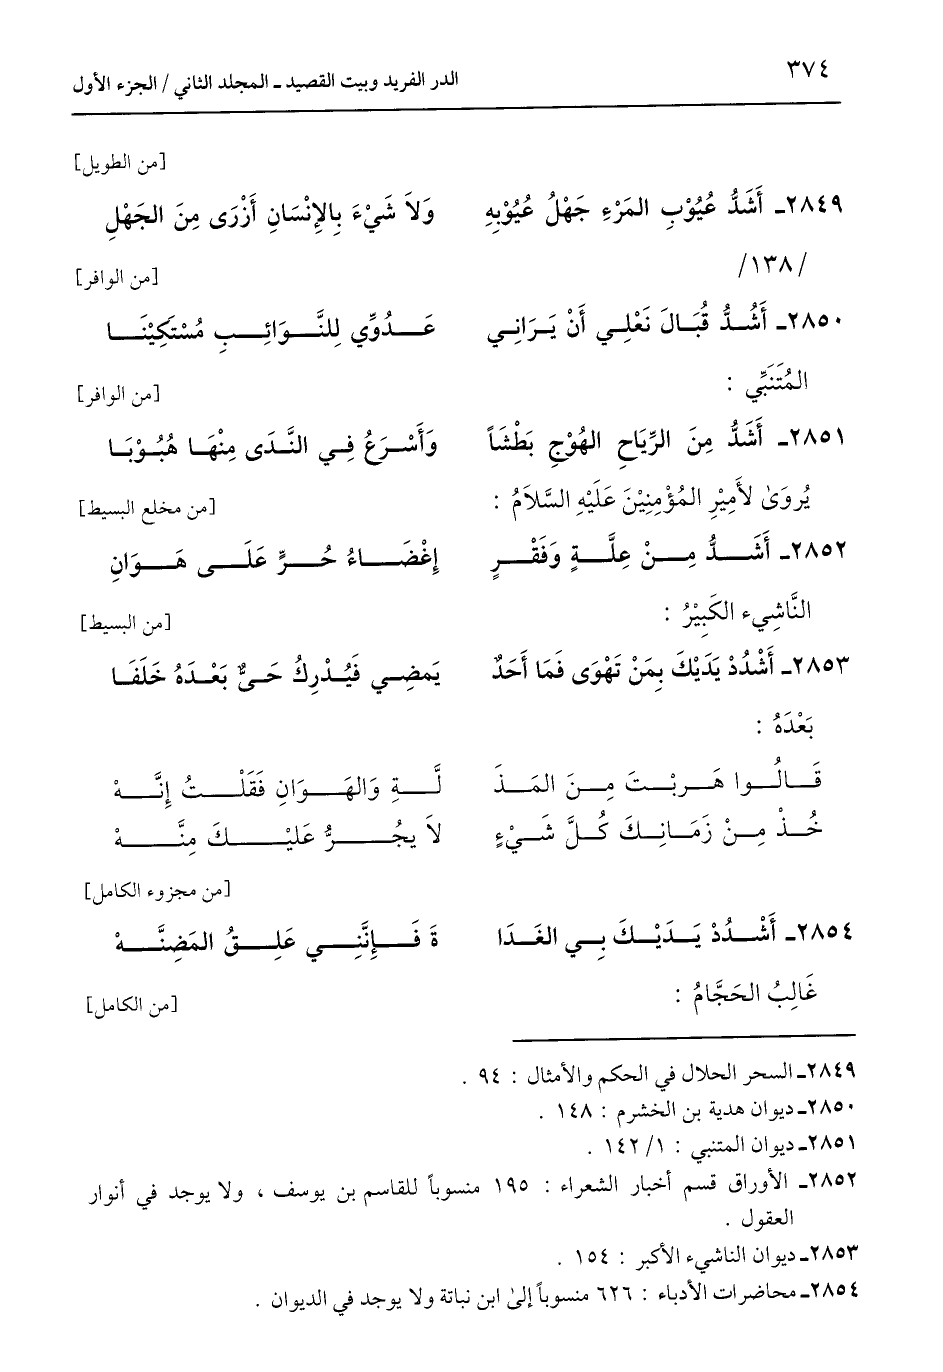 ٣٧٤
الدر الفريد وبيت القصيد ـ المجلد الثاني / الجزء الأول
[من الطويل]
٢٨٤٩ـ أَشَدُّ عُيُوْبِ المَرْءِ جَهْلُ عُيُوْبِهِ وَلاَ شَيْءَ بِالإِنْسَانِ أَزْرَى مِنَ الجَهْلِ
/١٣٨/
[من الوافر]
٢٨٥٠ـ أَشُدُّ قُبَالَ نَعْلِي أَنْ يَرَانِي عَدُوِّي لِلنَّوَائِبِ مُسْتَكِيْنَا
المُتَنَبِّي :
[من الوافر]
٢٨٥١ـ أَشَدُّ مِنَ الرِّيَاحِ الهُوْجِ بَطْشَاً وَأَسْرَعُ فِي النَّدَى مِنْهَا هُبُوْبَا
يُروَىٰ لأَمِيْرِ المُؤْمِنِيْنَ عَلَيْهِ السَّلاَمُ :
[من مخلع البسيط]
٢٨٥٢ـ أَشَدُّ مِنْ عِلَّةٍ وَفَقْرٍ إِغْضَاءُ حُرٍّ عَلَى هَوَانِ
النَّاشِيء الكَبِيْرُ :
[من البسيط]
٢٨٥٣ـ أَشْدُدْ يَدَيْكَ بِمَنْ تَهْوَى فَمَا أَحَدٌ يَمضِي فَيُدْرِكُ حَيٌّ بَعْدَهُ خَلَفَا
بَعْدَهُ :
قَالُوا هَرِبْتَ مِنَ المَذَ لَّةِ وَالهَوَانِ فَقَلْتُ إِنَّهْ
خُذْ مِنْ زَمَانِكَ كُلَّ شَيْءٍ لاَ يجُرُّ عَلَيْكَ مِنَّهْ
[من مجزوء الكامل]
٢٨٥٤ـ أَشْدُدْ يَدَيْكَ بِي الغَدَا ةَ فَإِنَّنِي عَلِقُ المَضِنَّهْ
غَالِبُ الحَجَّامُ :
[من الكامل]
٢٨٤٩ـ السحر الحلال في الحكم والأمثال : ٩٤ .
٢٨٥٠ـ ديوان هدبة بن الخشرم : ١٤٨ .
٢٨٥١ـ ديوان المتنبي : ١/ ١٤٢ .
٢٨٥٢ـ الأوراق قسم أخبار الشعراء : ١٩٥ منسوباً للقاسم بن يوسف ، ولا يوجد في أنوار
العقول .
٢٨٥٣ـ ديوان الناشيء الأكبر : ١٥٤ .
٢٨٥٤ـ محاضرات الأدباء : ٦٢٦ منسوباً إلىٰ ابن نباتة ولا يوجد في الديوان .